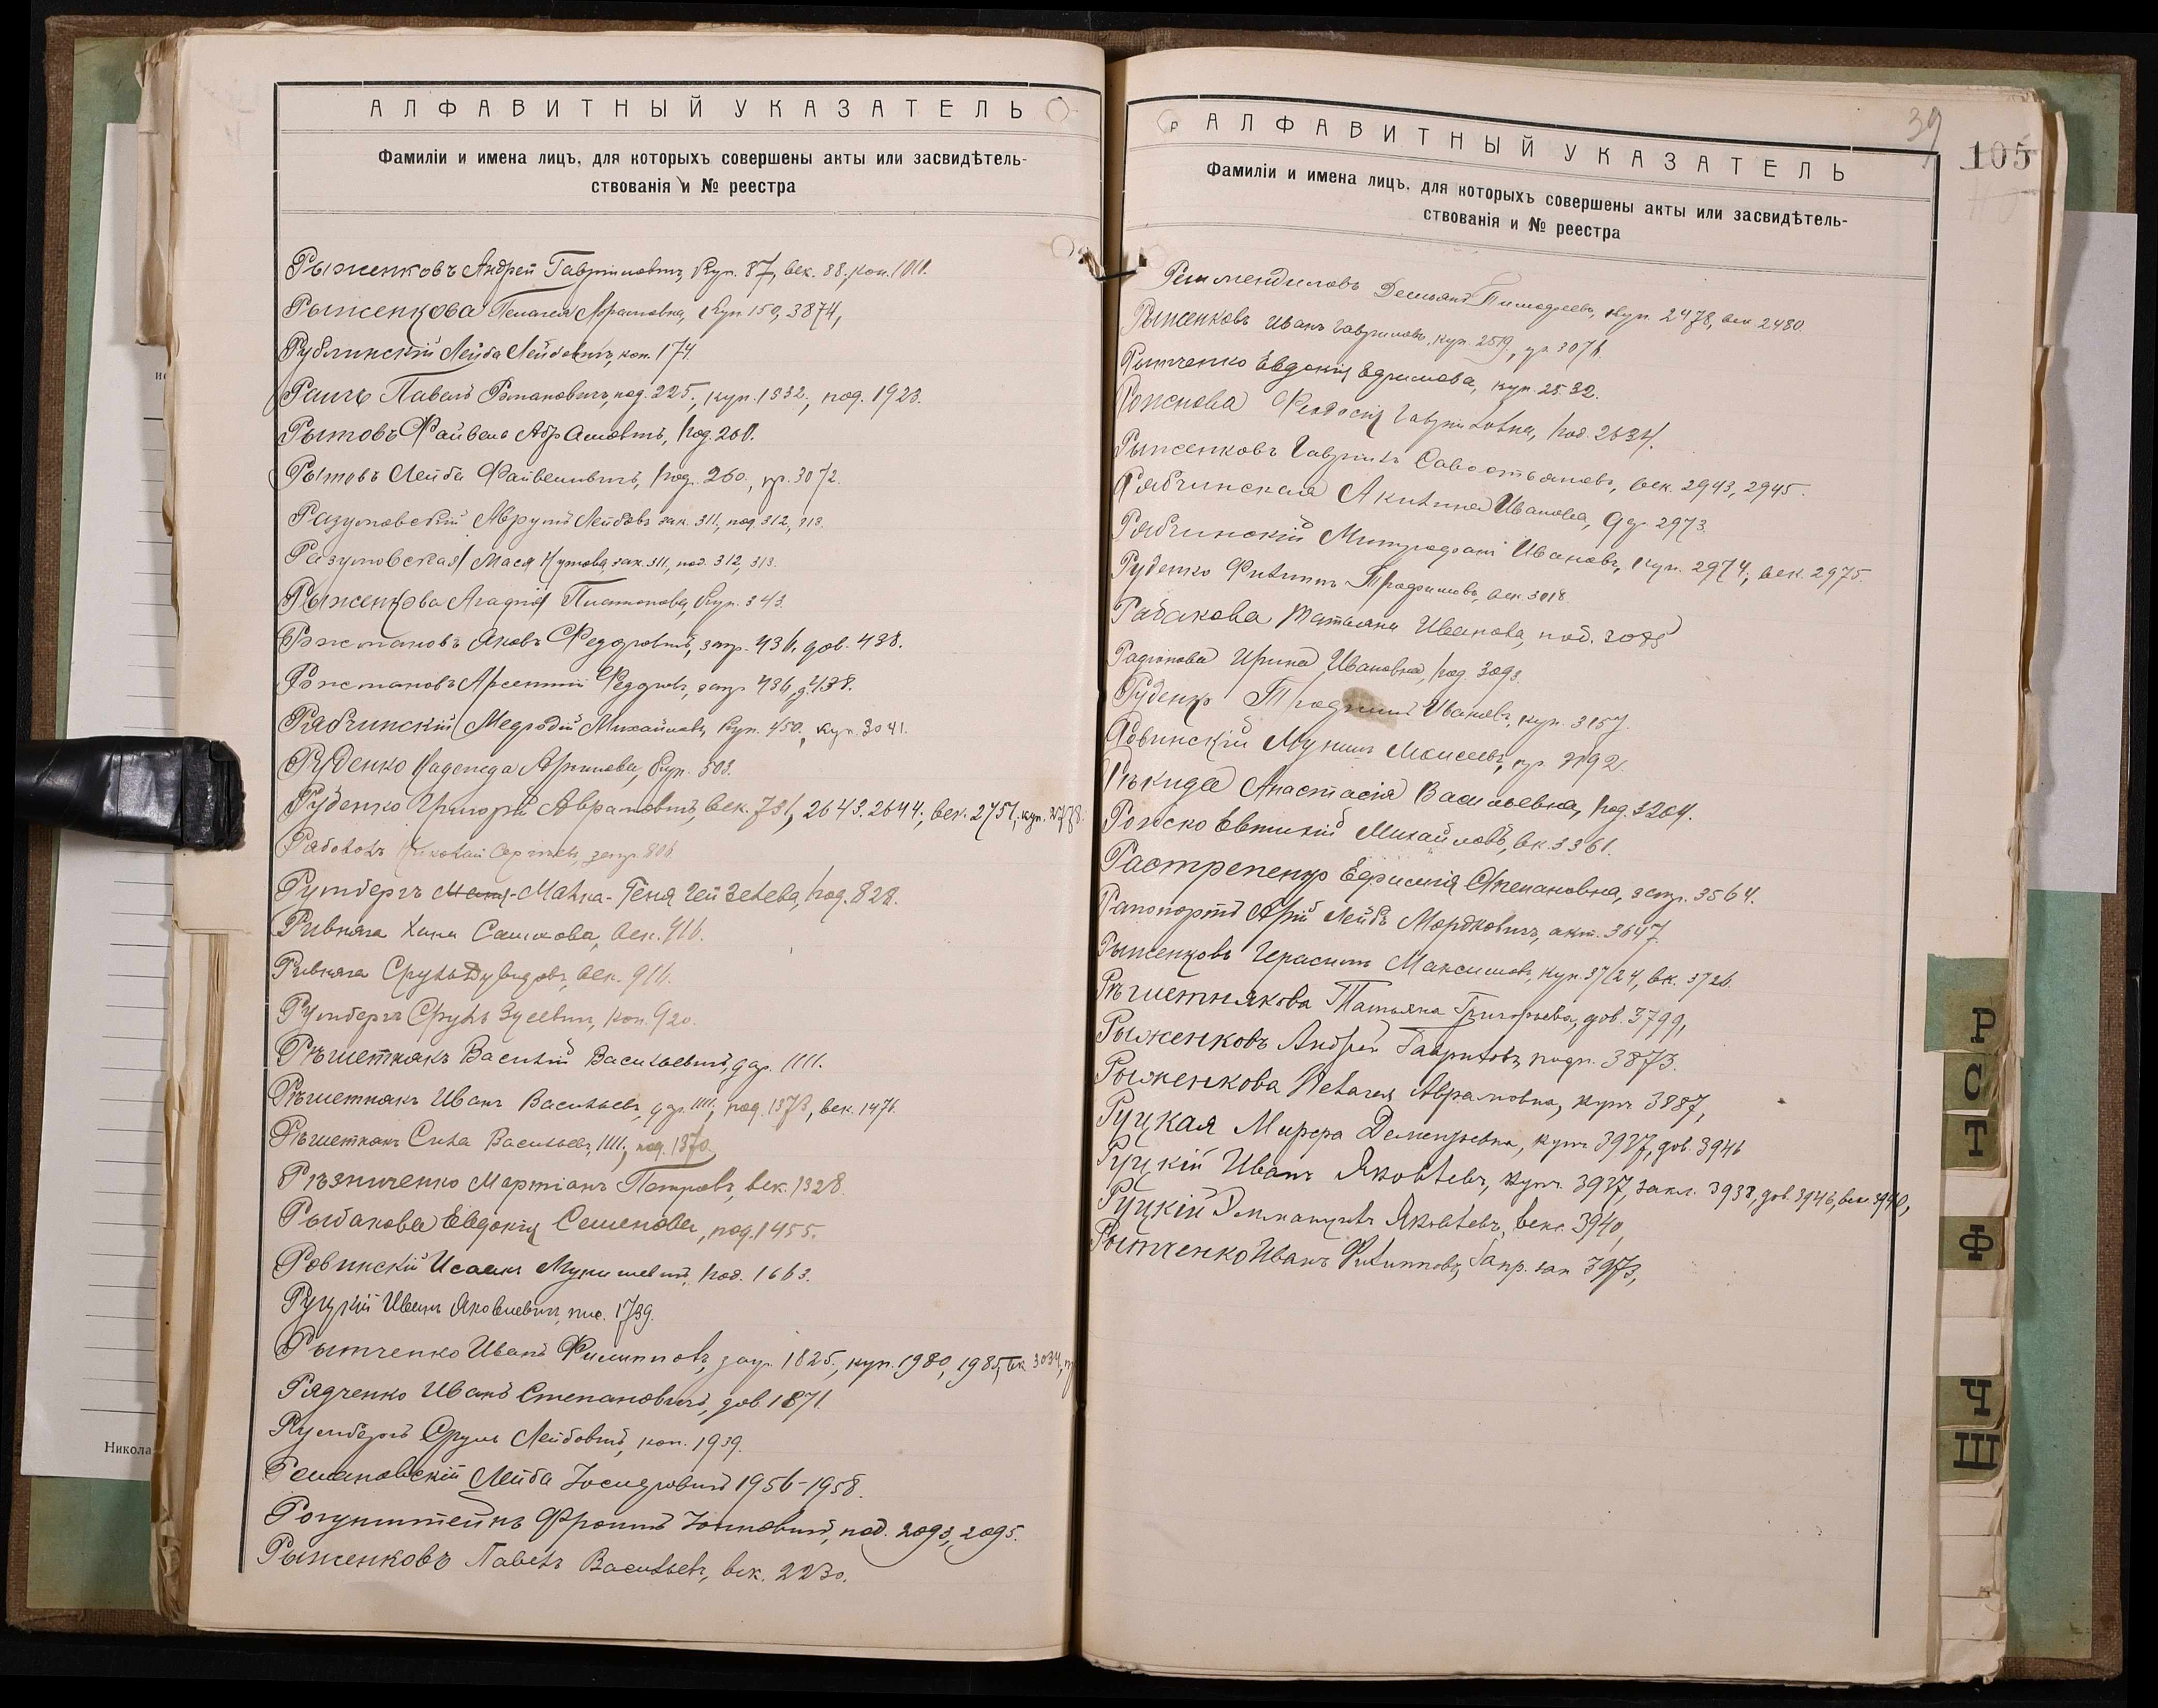 АЛФАВИТНЫЙ УКАЗАТЕЛЬ
Фамиліи и имена лицъ, для которыхъ совершены акты или засвидѣтель-
ствованія и № реестра
Рыженковъ Андрей Гавриловичъ, куп. 87, век. 88, коп. 1011.
Рыженкова Пелагея Абрамовна, куп. 159, 3874,
Рублинскій Лейба Лейбовичъ, коп. 174.
Рашъ Павелъ Романовичъ, под. 225., куп. 1832., под. 1923.
Рытовъ Файвель Абрамовичъ, под. 260.
Рытовъ Лейба Файвелевичъ, под. 260., пр. 3072.
Разумовскій Аврумъ Лейбовъ зак. 311, под. 312, 313.
Разумовская Мася зак. 311, под. 312, 313.
Рыженкова Агафія Платонова, куп. 343.
Рожмановъ Яковъ Федоровичъ, запр. 436, дов. 438.
Рожмановъ Арсентій Федоровъ, запр 436, д. 438.
Рябчинскій Мефодій Михайловъ, куп. 450., куп. 3041.
Руденко Надежда Ефимова, куп. 503.
Руденко Григорій Аврамовичъ, век. 731, 2643. 2644., век. 2751, куп. 2778.
Николай Сергѣевъ, запр. 806
Рутбергъ Малка-Геня Зелева, под. 828.
Ривняга Хина век. 916.
Ривняга Сруль Дувидовъ, век. 916.
Рутбергъ Сруль Зусевичъ, коп. 920.
Рѣшетнякъ Василій Васильевичъ, дар. 1111.
Рѣшетнякъ Иванъ Васильевъ, дар. 1111, под. 1373, век. 1476.
Рѣшетнякъ Сила Васильевъ, 1111, под. 1370.
Рѣзниченко Мартіанъ Петровъ, век. 1328.
Рыбакова Евдокія Семенова, под. 1455.
Ровинскій Исаакъ под. 1663.
Руцкій Иванъ Яковлевичъ, 1739.
Рытченко Иванъ Филипповъ, 1825., куп. 1980, 1985, вк 3034,
Рядченко Иванъ Степановичъ, дов. 1871.
Рутбергъ Сруль Лейбовичъ, коп. 1939.
Романовскій Лейба Іосифовичъ 1956-1958.
Фроимъ под. 2093, 2095.
Рыженковъ Павелъ Васильевъ, век. 2230.
39
105
АЛФАВИТНЫЙ УКАЗАТЕЛЬ
Фамиліи и имена лицъ, для которыхъ совершены акты или засвидѣтель-
ствованія и № реестра
Демьянъ Тимофеевъ, куп. 2478, век 2480.
Рыженковъ Иванъ Гавриловъ, куп. 2519., 3076.
Рытченко Евдокія Ефимова, куп. 2532.
Рожнова Феодосія Гавриловна, под. 2634.
Рыженковъ Гаврилъ Савостьяновъ, век. 2943, 2945.
Рябчинская Акилина Иванова, др. 2973.
Рябчинскій Митрофанъ Ивановъ, куп. 2974, век. 2975.
Руденко Филиппъ Трофимовъ, век. 3018
Рыбакова Татьяна Иванова, под. 3085
Радіонова Ирина Ивановна, под. 3093.
Руденко Трофимъ Ивановъ, куп. 3157.
Ровинскій Моисеевъ, пр. 3192.
Рѣкида Анастасія Васильевна, под. 3204.
Рожко Евтихій Михайловъ, вк. 3361.
Растрепенко Ефимія Степановна, запр. 3564.
Рапопортъ Арій Лейбъ Мордковичъ, акт. 3647.
Рыженковъ Герасимъ Максимовъ, куп. 3724, вк. 3726.
Рѣшетнякова Татьяна Григорьева, дов. 3799,
Рыженковъ Андрей Гавриловъ, подп. 3873.
Рыженкова Пелагея Аврамовна, купч 3887,
Руцкая Марфа Дементьевна, купч 3937, дов. 3946
Руцкій Иванъ Яковлевъ, купч. 3937, закл. 3938, дов. 3946, век. 3940,
Руцкій Эммануилъ Яковлевъ, векс. 3940,
Рытченко Иванъ Филипповъ, Запр. зап 3973,
Р
С
Т
Ф
Ч
Ш
Никола